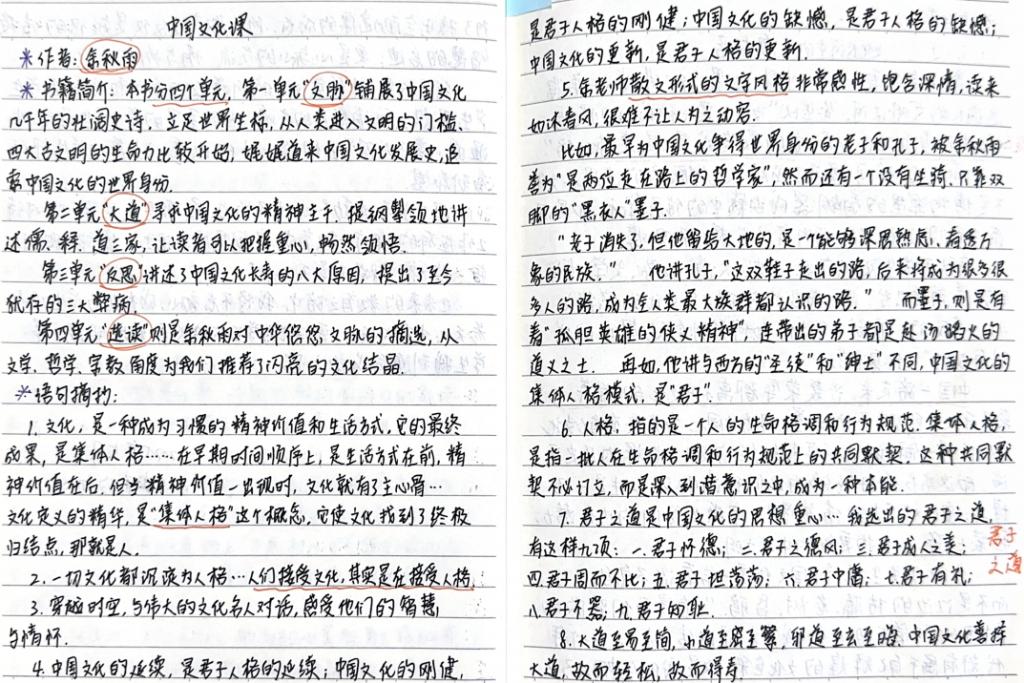 中国文化课
*作者：余秋雨
*书籍简介：本书分四个单元，第一单元"文脉"铺展了中国文化
几千年的壮阔史诗。立足世界坐标，从人类进入文明的门槛、
四大古文明的生命力比较开始，娓娓道来中国文化发展史，追
索中国文化的世界身份。
第二单元"大道"寻求中国文化的精神主干，提纲挈领地讲
述儒、释、道三家，让读者可以把握重心，畅然领悟。
第三单元"反思"讲述了中国文化长寿的八大原因，提出了至今
犹存的三大弊病。
第四单元"选读"则是余秋雨对中华悠悠文脉的摘选，从
文学、哲学、宗教角度为我们推荐了闪亮的文化结晶。
*语句摘抄：
1.文化，是一种成为习惯的精神价值和生活方式，它的最终
成果，是集体人格……在早期时间顺序上，是生活方式在前，精
神价值在后。但当精神价值一出现时，文化就有了主心骨…
文化定义的精华，是"集体人格"这个概念，它使文化找到了终极
归结点，那就是人。
2.一切文化都沉淀为人格…人们接受文化，其实是在接受人格。
3.穿越时空，与伟大的文化名人对话，感受他们的智慧
与情怀。
4.中国文化的延续，是君子人格的延续；中国文化的刚健，
是君子人格的刚健；中国文化的缺憾，是君子人格的缺憾；
中国文化的更新，是君子人格的更新。
5.余老师散文形式的文字风格非常感性，饱含深情，读来
如沐春风，很难不让人为之动容。
比如，最早为中国文化争得世界身份的老子和孔子，被余秋雨
誉为"是两位走在路上的哲学家"，然而还有一个没有坐骑、只靠双
脚的"黑衣人"墨子。
"老子消失了，但他留给大地的，是一个能够深思熟虑、看透万
象的民族。" 他讲孔子，"这双鞋子走出的路，后来将成为很多很
多人的路，成为全人类最大族群都认识的路。" 而墨子，则是有
着"孤胆英雄的侠义精神"，连带出的弟子都是赴汤蹈火的
道义之士. 再如，他讲与西方的"圣徒"和"绅士"不同，中国文化的
集体人格模式，是"君子"
6.人格，指的是一个人的生命格调和行为规范.集体人格，
是指一批人在生命格调和行为规范上的共同默契.这种共同默
契不必订立，而是深入到潜意识之中，成为一种本能.
7.君子之道是中国文化的思想重心…我选出的君子之道，
有这样九项：一.君子怀德；二.君子之德风；三.君子成人之美；
君子之道
四.君子周而不比；五.君子坦荡荡；六.君子中庸；七.君子有礼；
八.君子不器，九.君子知耻.
8.大道至易至简，小道至密至繁，邪道至玄至晦.中国文化善择
大道，故而轻松，故而得寿.